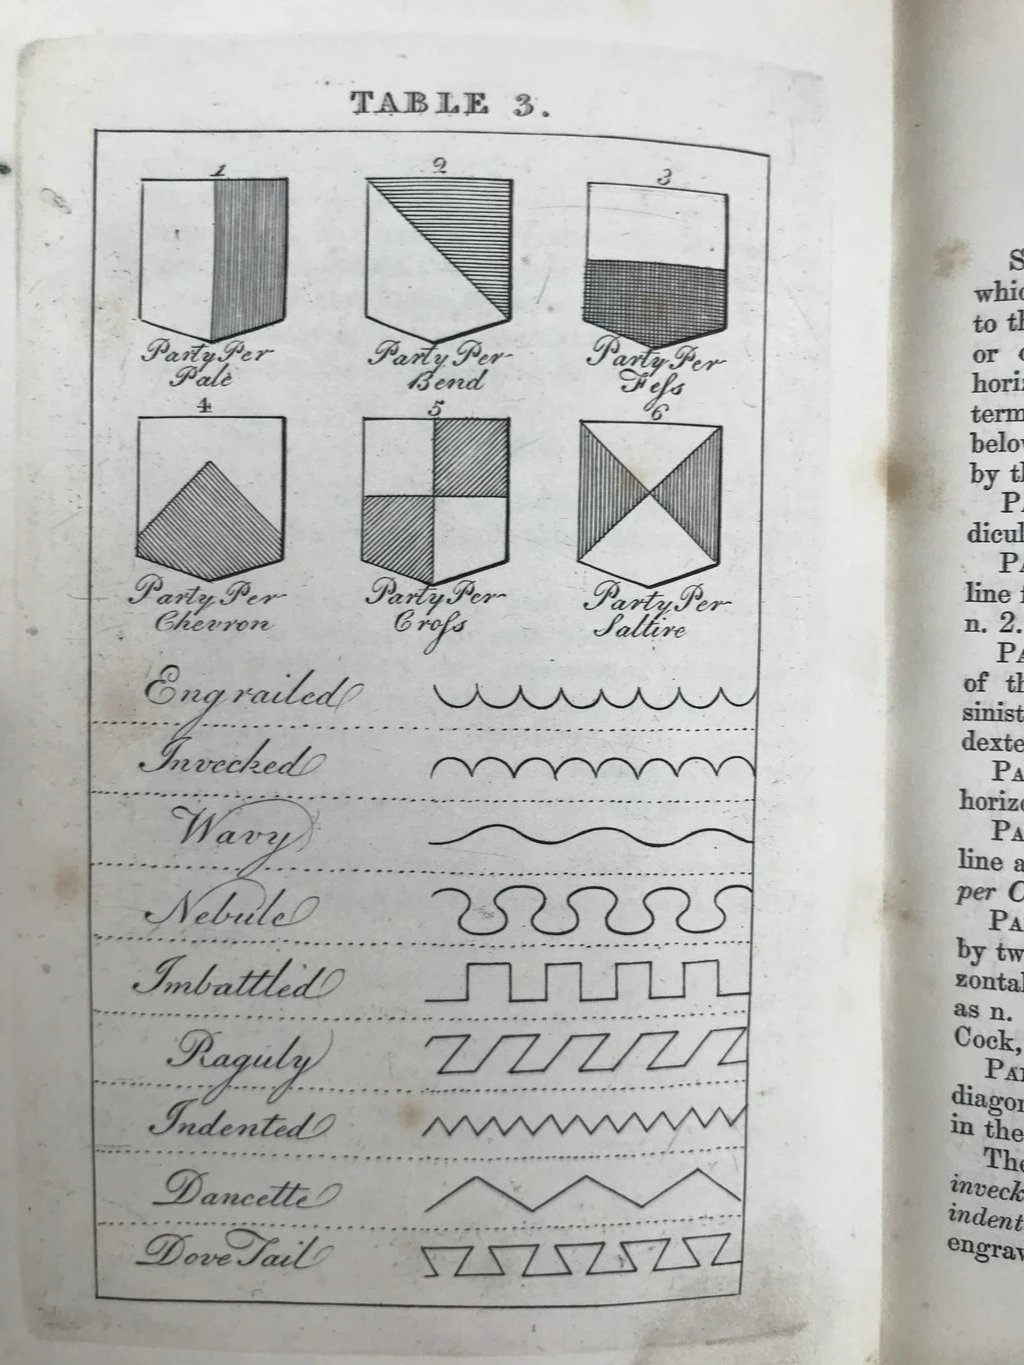 TABLE 3.
1 2 3
Party Per Pale
Party Per Bend
Party Per Fess
4 5 6
Party Per Chevron
Party Per Cross
Party Per Saltire
Engrailed
Invecked
Wavy
Nebule
Imbattled
Raguly
Indented
Dancette
Dove Tail
S
whic
to th
or
horiz
term
below
by th
PA
dicul
PA
line f
n. 2.
PA
of th
sinist
dexte
PA
horizo
PA
line a
per C
PA
by tw
zontal
as n.
Cock,
PAR
diagon
in the
The
inveck
indent
engrav